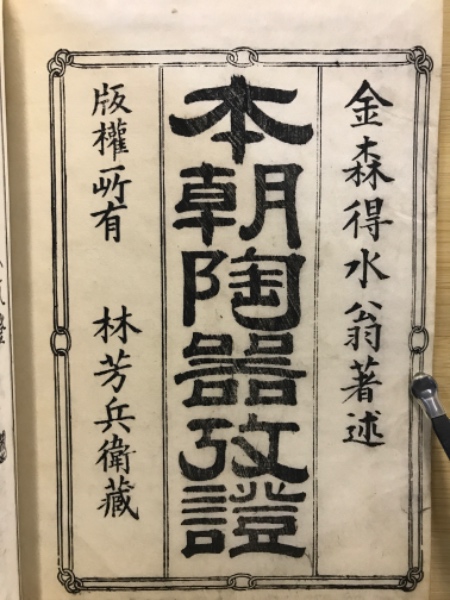 金森得水翁著述
本朝陶器攷證
版權所有 林芳兵衛藏